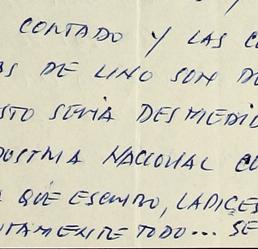 CONTADO Y LAS C
AS DE UNO SON D
STO SERIA DESMEDID
DUSTRIA NACIONAL CO
QUE ESCRIBO,
NTAMENTE TODO... SE